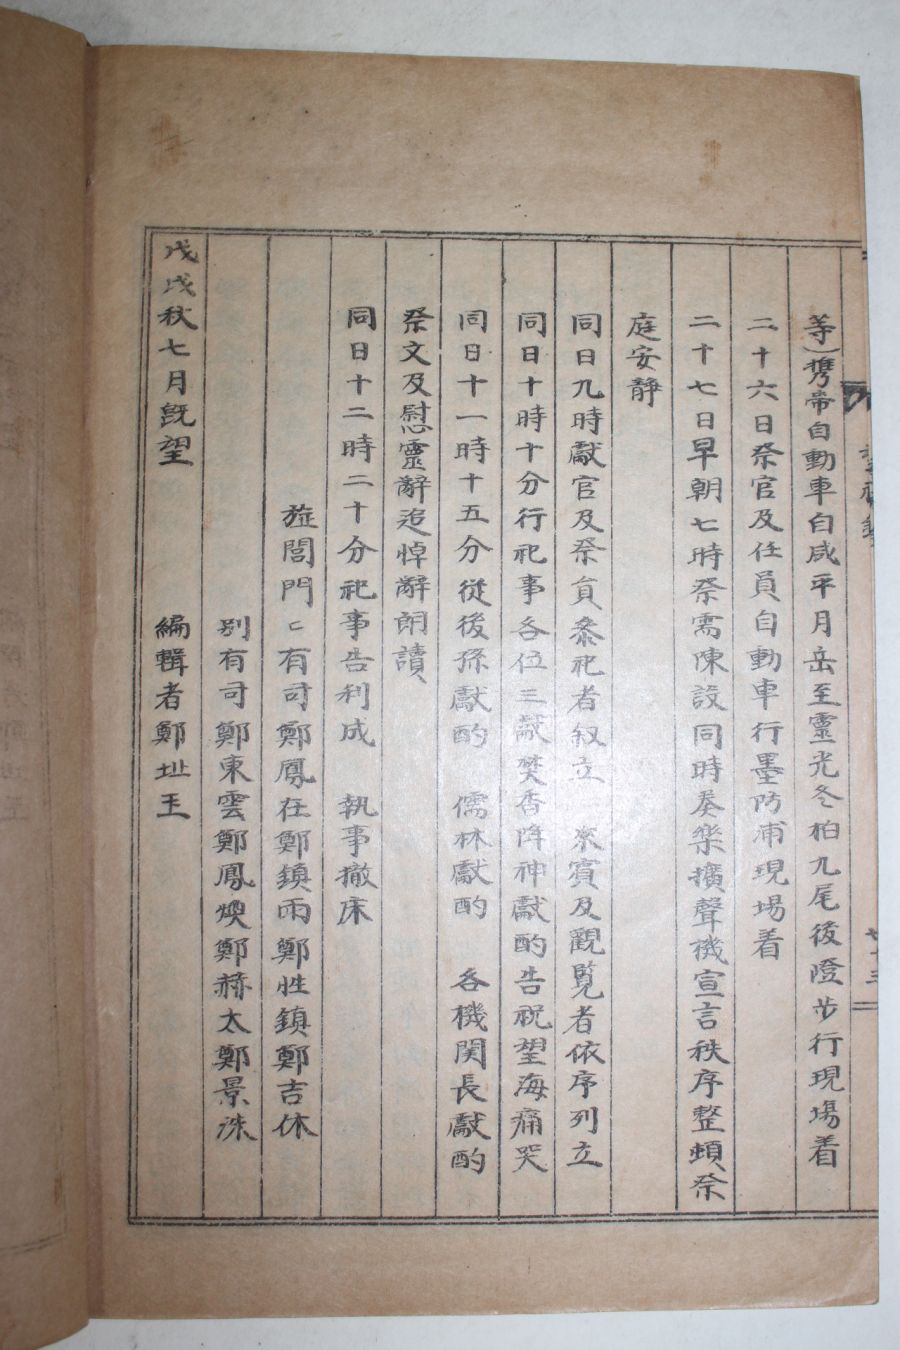 等)携帝自動車自咸平月岳至靈光冬柏九尾後隥步行現場着
二十六日祭官及任員自動車行墨防浦現場着
二十七日早朝七時祭需陳設同時奏樂擴聲機宣言秩序整頓祭
庭安靜
同日九時獻官及祭員叅祀者叙立 來賓及觀覧者依序列立
同日十時十分行祀事各位三獻焚香降神獻酌告祝望海痛哭
同日十一時十五分從後孫獻酌 儒林獻酌 各機関長獻酌
祭文及慰靈辭追悼辭朗讀
同日十二時二十分祀事告利成 執事撤床
旌閭門〻有司鄭鳳在鄭鎮雨鄭性鎮鄭吉休
別有司鄭東雲鄭鳳煥鄭赫太鄭景洙
戊戌秋七月旣望 編輯者鄭址王